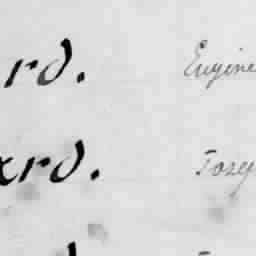 rd. Eugine
xrd. Tozy